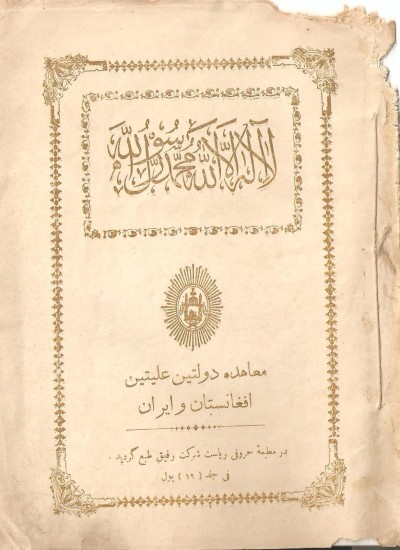 لا اله الا الله محمد رسول الله
معاهده دولتین علیتین
افغانستان و ایران
در مطبعهٔ حروفی ریاست شرکت رفیق طبع گردید .
فی جلد ( ۱۹ ) پول